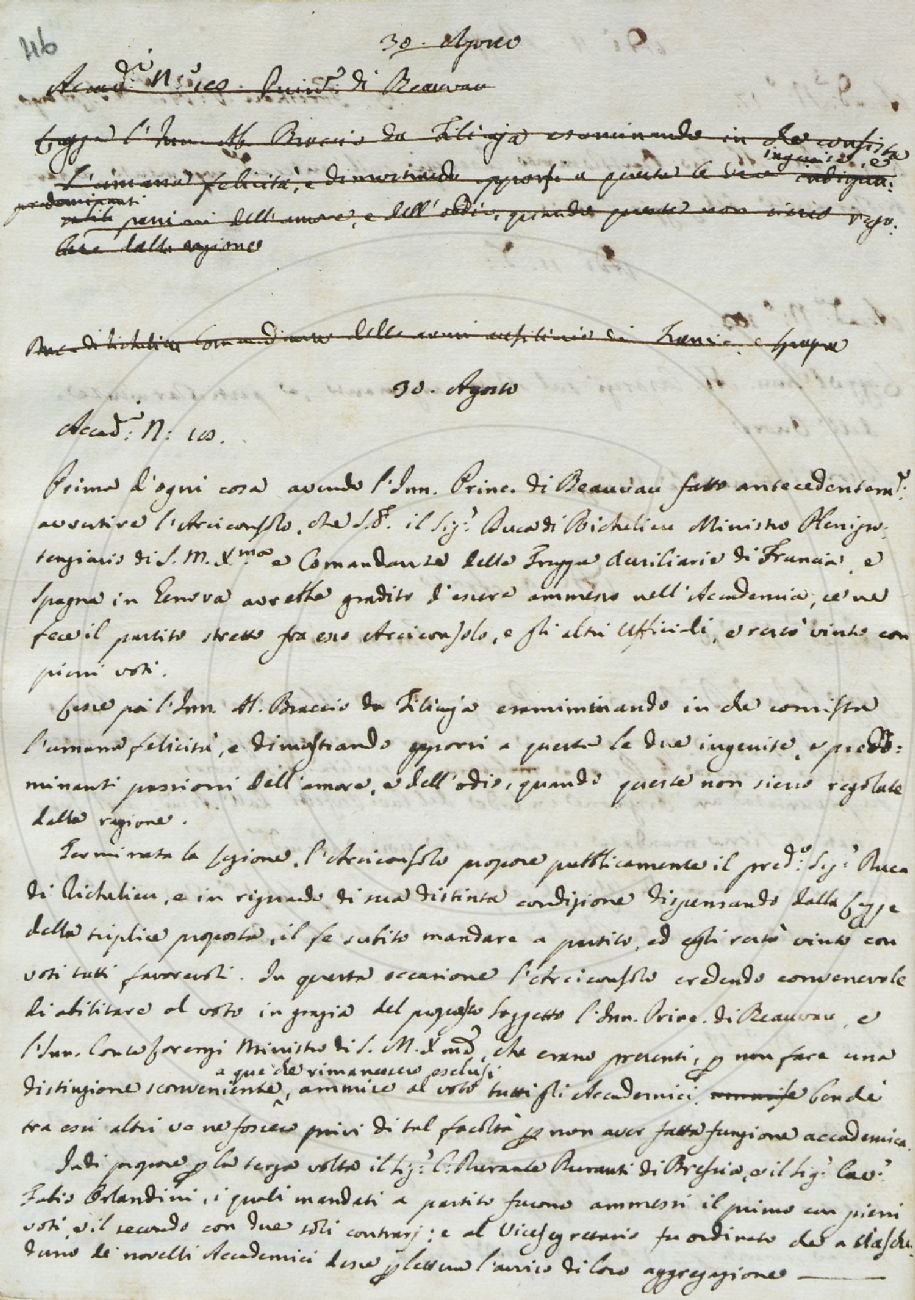 46
30. Agosto
Accad.ª N.º 100. Princ.e di Beauvau
Legge l'Inn. Ab. Braccio da Filicaja esaminando in che consista
ingenite, e
l'umana felicità, e dimostrando opporsi a questa le due
predominanti
passioni dell'amore, e dell'odio, quando queste non sieno rego:
late dalla ragione
Duca di Richelieu Comandante delle armi ausiliarie di Francia, e Spagna
30. Agosto
Accad.ª N: 100.
Prima d'ogni cosa avendo l'Inn. Princ. di Beauvau fatto antecedentem.e
avvertire l'Arciconsolo, che S. E. il Sig.r Duca di Richelieu Ministro Plenipo:
tenziario di S. M. X.ma e Comandante delle Truppe Ausiliarie di Francia, e
Spagna in Genova avrebbe gradito d'essere ammesso nell'Accademia, ce ne
fece il partito stretto fra esso Arciconsolo, e gli altri Uffiziali, e restò vinto con
pieni voti.
Lesse poi l'Inn. Ab. Braccio da Filicaja esamiminando in che consista
l'umana felicità, e dimostrando opporsi a questa le due ingenite, e predo:
minanti passioni dell'amore, e dell'odio, quando queste non sieno regolate
dalla ragione.
Terminata la lezione, l'Arciconsolo propose pubblicamente il pred.º Sig.r Duca
di Richelieu, e in riguardo di sua distinta condizione dispensando dalla Legge
della triplice proposta, il fe subito mandare a partito, ed egli restò vinto con
voti tutti favorevoli. In questa occasione l'Arciconsolo credendo convenevole
di abilitare al voto in grazia del proposto Soggetto l'Inn. Princ. di Beauvau, e
l'Inn. Conte Lorenzi Ministro di S. M. X.ma, che erano presenti, p non fare una
a que' che rimanessero esclusi
distinzione sconveniente, ammise al voto tutti gli Accademici, benchè
tra essi altri ve ne fossero privi di tal facoltà p non aver fatta funzione accademica.
Indi propose p la terza volta il Sig.r C. Durante Duranti di Brescia, e il Sig.r Cav.r
Fabio Orlandini, i quali mandati a partito furono ammessi il primo con pieni
voti, e il secondo con due soli contrarj; e al Vicesegretario fu ordinato che a ciasche:
duno de' novelli Accademici desse p lettera l'avviso di loro aggregazione